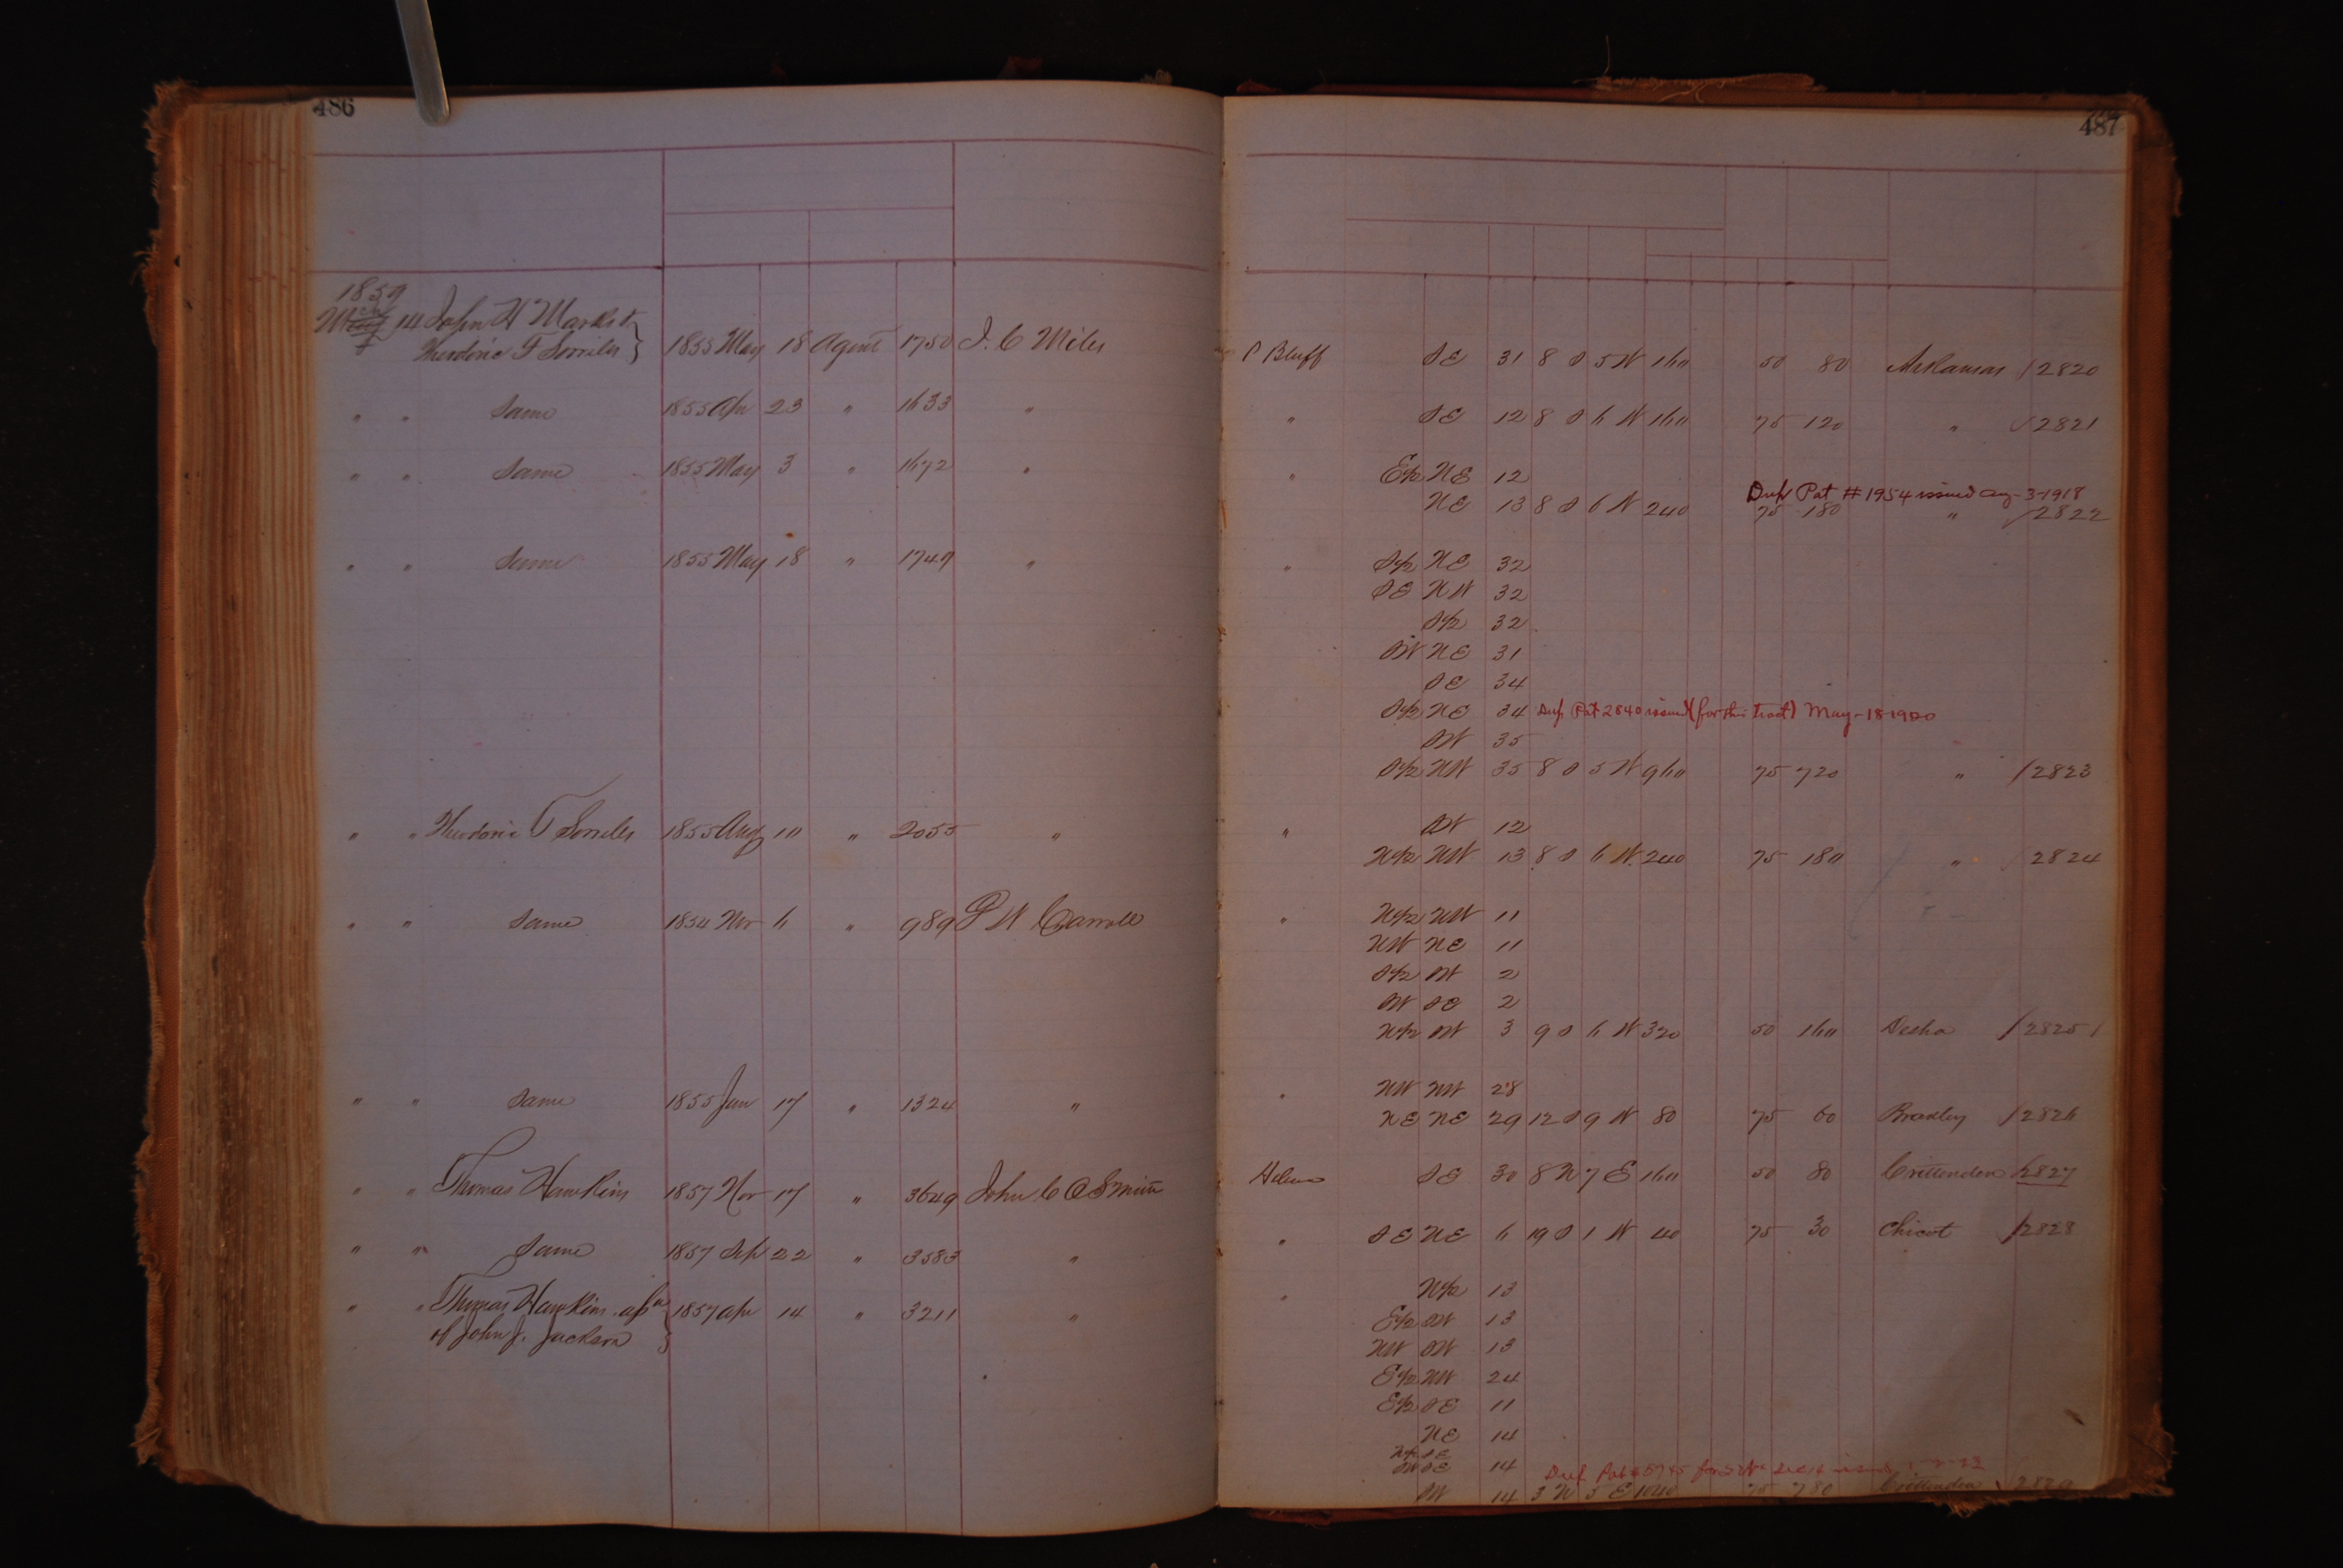 486
1859
14 John H Marks &
Theodoric F Sorrells } 1855 May 18 Agent 1750 J. C Miles
" " Same 1855 Apr 23 " 1633 "
" " Same 1855 May 3 " 1672 "
" " Same 1855 May 18 " 1749 "
" " Theodoric F Sorrells 1855 Aug 10 " 2055 "
" " Same 1854 Nov 6 " 989 P W Carroll
" " Same 1855 Jan 17 " 1324 "
" " Thomas Hawkins 1857 Nov 17 " 3649 John C O Smith
" " Same 1857 Sep 22 " 3583 "
" " Thomas Hawkins
of John J. Jackson } 1857 Apr 14 " 3211 "
487
P Bluff SE 31 8 S 5 W 160 50 80 Arkansas / 2820
" SE 12 8 S 6 W 160 75 120 " / 2821
" E½ NE 12
Dup Pat # 1954 issued Aug-3-1918
NE 13 8 S 6 W 240 75 180 " / 2822
" S½ NE 32
SE NW 32
S½ 32
SW NE 31
SE 34
S½ NE 34 Dup Pat 2840 issued (for this tract) May-18-1920
SW 35
S½ NW 35 8 S 5 W 960 75 720 " / 2823
" SW 12
N½ NW 13 8 S 6 W 240 75 180 " / 2824
" N½ NW 11
NW NE 11
S½ SW 2
SW SE 2
N½ SW 3 9 S 6 W 320 50 160 Desha / 2825
" NW NW 28
NE NE 29 12 S 9 W 80 75 60 Bradley / 2826
Helena SE 30 8 N 7 E 160 50 80 Crittenden / 2827
" SE NE 6 19 S 1 W 40 75 30 Chicot / 2828
" N½ 13
E½ SW 13
NW SW 13
E½ NW 24
E½ SE 11
NE 14
N½ SE
SW SE 14
Dup Pat
SW 14 3 N 5 E 1040 75 780 Crittenden 2829